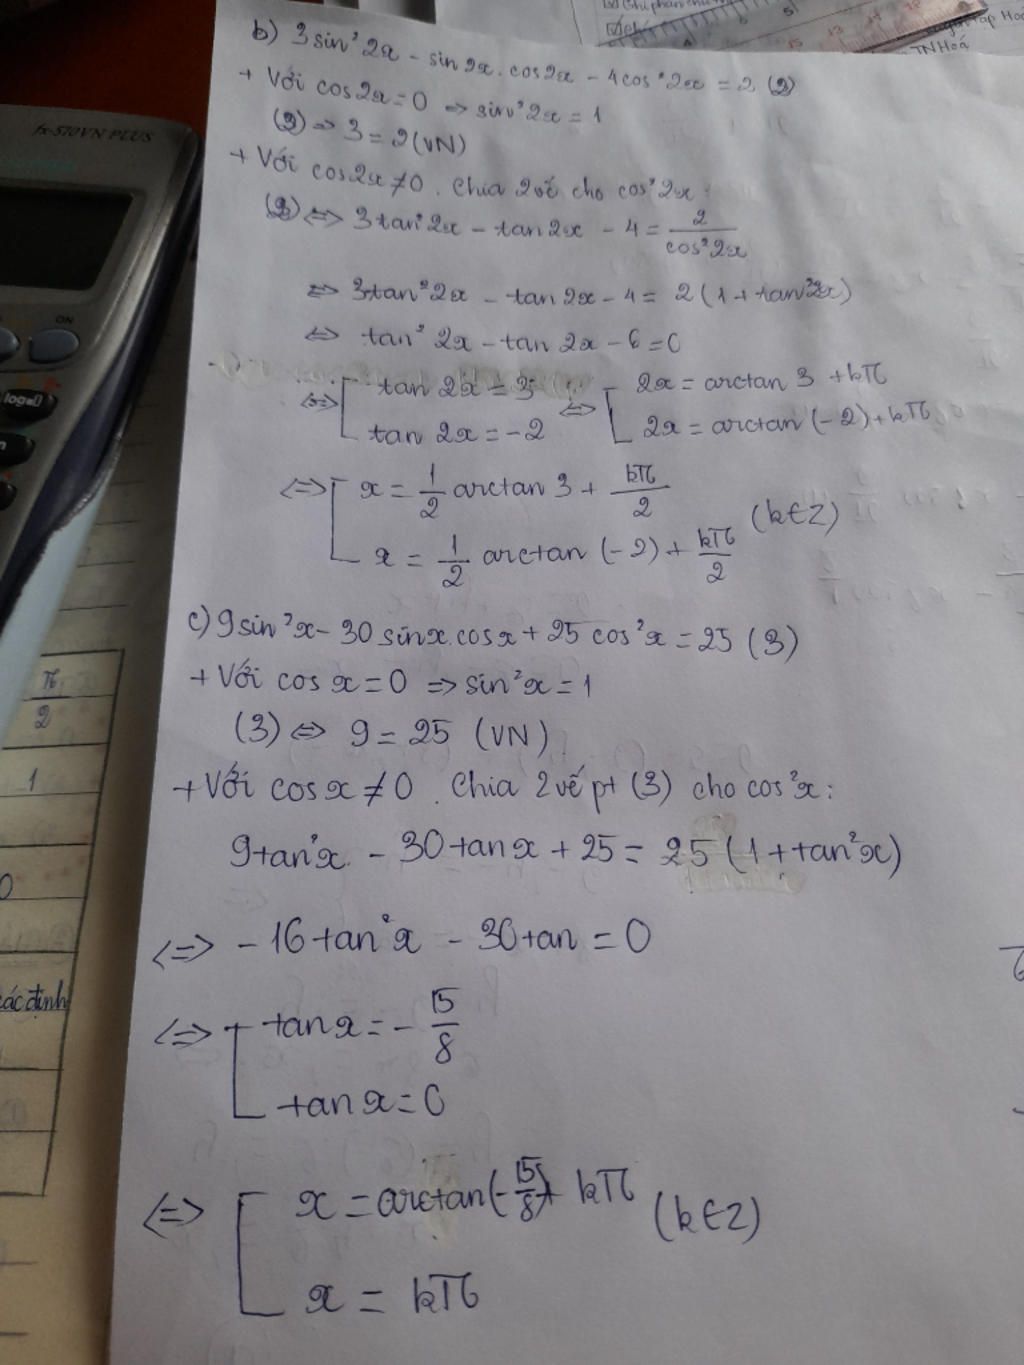 Ghi phản
TN Hoá
fx-570VN PLUS
b) 3sin²2x - sin2x.cos2x - 4cos²2x = 2 (2)
+ Với cos2x=0 => sin²2x = 1
(2) => 3 = 2 (VN)
+ Với cos2x≠0. Chia 2 vế cho cos²2x:
(2) <=> 3tan²2x - tan2x - 4 = 2/cos²2x
<=> 3tan²2x - tan2x - 4 = 2(1+tan²2x)
<=> tan²2x - tan2x - 6 = 0
<=> [ tan2x = 3 <=> [ 2x = arctan 3 + kπ
tan 2x = -2 2x = arctan(-2) + kπ
<=> [ x = 1/2 arctan 3 + kπ/2
x = 1/2 arctan (-2) + kπ/2 (k∈Z)
c) 9sin²x - 30sinx.cosx + 25cos²x = 25 (3)
+ Với cosx = 0 => sin²x = 1
(3) <=> 9 = 25 (VN)
+ Với cosx≠0. Chia 2 vế pt (3) cho cos²x:
9tan²x - 30tanx + 25 = 25(1+tan²x)
<=> -16tan²x - 30tan = 0
<=> [ tanx = -15/8
tanx = 0
<=> [ x = arctan(-15/8) + kπ (k∈Z)
x = kπ
ON
log
π/2
1
0
xác định